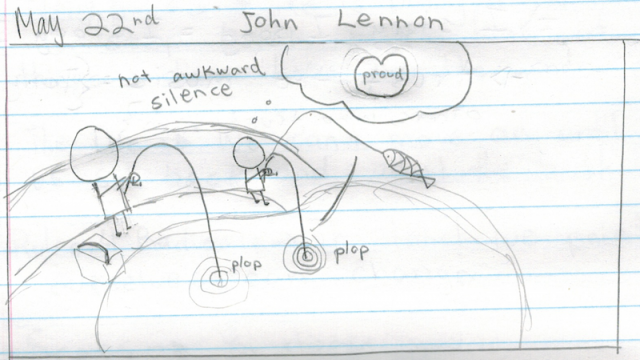 May 22nd John Lennon
not awkward
silence
proud
plop
plop